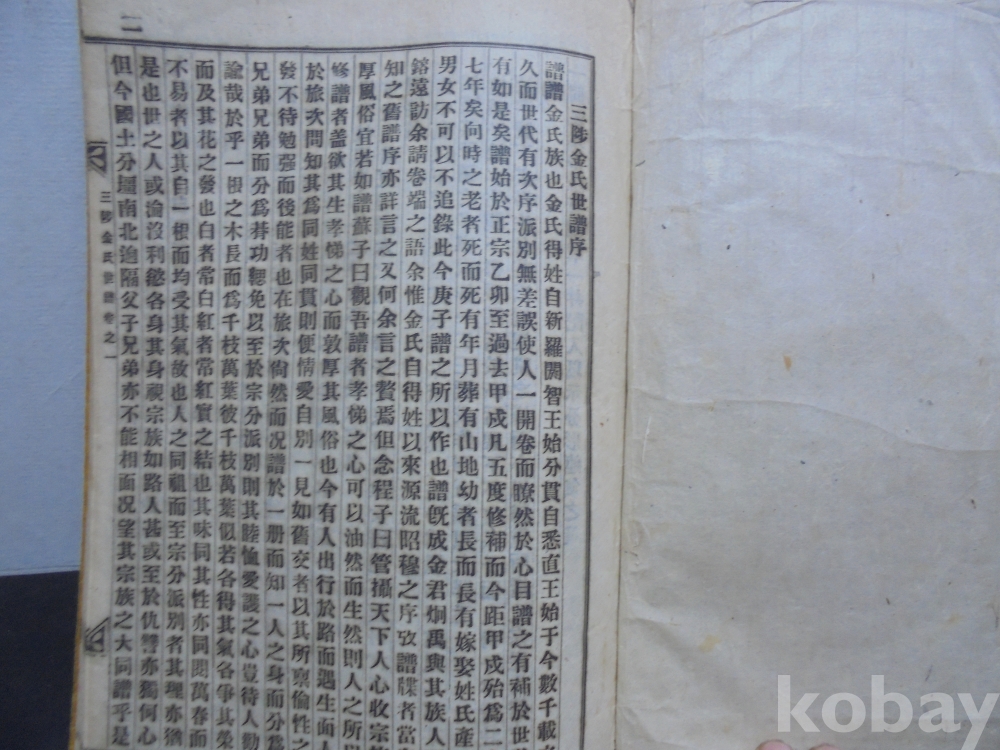 三陟金氏世譜序
譜譜金氏族也金氏得姓自新羅閼智王始分貫自悉直王始于今數千載
久而世代有次序派別無差誤使人一開卷而瞭然於心目譜之有補於世
有如是矣譜始於正宗乙卯至過去甲戌凡五度修補而今距甲戌殆爲二
七年矣向時之老者死而死有年月葬有山地幼者長而長有嫁娶姓氏產
男女不可以不追錄此今庚子譜之所以作也譜旣成金君炯禹與其族人
鎔遠訪余請卷端之語余惟金氏自得姓以來源流昭穆之序攷譜牒者當
知之舊譜序亦詳言之又何余言之贅焉但念程子曰管攝天下人心收宗
厚風俗宜若如譜蘇子曰觀吾譜者孝悌之心可以油然而生然則人之所以
修譜者盖欲其生孝悌之心而敦厚其風俗也今有人出行於路而遇生面人
於旅次問知其爲同姓同貫則便情愛自別一見如舊交者以其所禀倫性之
發不待勉强而後能者也在旅次尙然而况譜於一册而知一人之身而分爲
兄弟兄弟而分爲朞功緦免以至於宗分派別則其睦恤愛護之心豈待人勸
諭哉於乎一根之木長而爲千枝萬葉彼千枝萬葉似若各得其氣各爭其榮
而及其花之發也白者常白紅者常紅實之結也其味同其性亦同閱萬春而
不易者以其自一根而均受其氣故也人之同祖而至宗分派別者其理亦猶
是也世之人或淪沒利慾各身其身視宗族如路人甚或至於仇讐亦獨何心
但今國土分壃南北逈隔父子兄弟亦不能相面况望其宗族之大同譜乎是
三陟金氏世譜卷之一
二
kobay